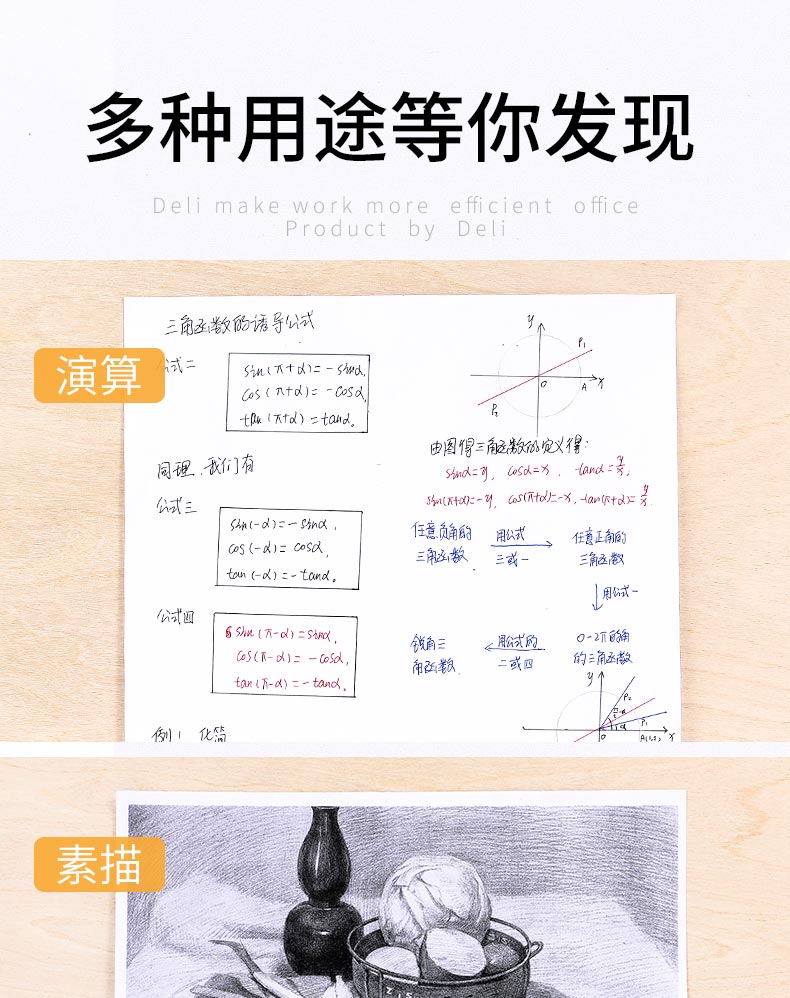 多种用途等你发现
Deli make work more efficient office
Product by Deli
演算
三角函数的诱导公式
公式二
sin(π+α)=-sinα,
cos(π+α)=-cosα,
tan(π+α)=tanα。
同理,我们有
公式三
sin(-α)=-sinα,
cos(-α)=cosα,
tan(-α)=-tanα。
公式四
sin(π-α)=sinα,
cos(π-α)=-cosα,
tan(π-α)=-tanα。
例1 化简
y
P₁
O
A
x
P₂
由图得三角函数的定义得:
sinα=y, cosα=x, tanα=y/x,
sin(π+α)=-y, cos(π+α)=-x, tan(π+α)=y/x.
任意负角的
三角函数
用公式
三或一
任意正角的
三角函数
用公式一
0-2π的角
的三角函数
用公式的
二或四
锐角三
角函数
y
P₂
π-α
P₁
α
O
x
素描